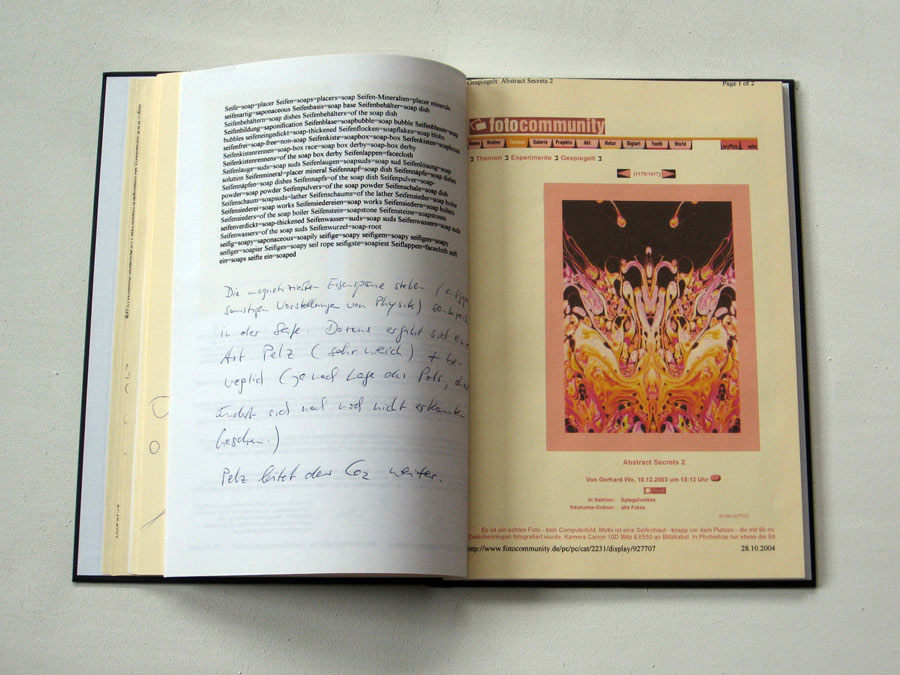 Seife=soap=placer Seifen=soaps=placers=soap Seifen-Mineralien=placer minerals
seifenartig=saponaceous Seifenbasis=soap base Seifenbehälter=soap dish
Seifenbehältern=soap dishes Seifenbehälters=of the soap dish
Seifenbildung=saponification Seifenblase=soapbubble=soap bubble Seifenblasen=soap
bubbles seifeneingedickt=soap-thickened Seifenflocken=soapflakes=soap blobs
seifenfrei=soap-free=non-soap Seifenkiste=soapbox=soap-box Seifenkisten=soapboxes
Seifenkistenrennen=soap-box race=soap box derby=soap-box derby
Seifenkistenrennens=of the soap box derby Seifenlappen=facecloth
Seifenlauge=suds=soap suds Seifenlaugen=soapsuds=soap sud Seifenlösung=soap
solution Seifenmineral=placer mineral Seifennapf=soap dish Seifennäpfe=soap dishes
Seifennäpfen=soap dishes Seifennapfs=of the soap dish Seifenpulver=soap-
powder=soap powder Seifenpulvers=of the soap powder Seifenschale=soap dish
Seifenschaum=soapsuds=lather Seifenschaums=of the lather Seifensieder=soap boiler
Seifensiederei=soap works Seifensiedereien=soap works Seifensiedern=soap boilers
Seifensieders=of the soap boiler Seifenstein=soapstone Seifensteine=soapstones
seifenverdickt=soap-thickened Seifenwasser=suds=soap suds Seifenwassern=soap suds
Seifenwassers=of the soap suds Seifenwurzel=soap-root
seifig=soap=sapy=saponaceous=soapily seifige=soapy seifigem=soapy seifigen=soapy
seifiger=soapier Seifiges=soapy seil rope seifigste=soapiest Seiflappen=facecloth seift
ein=soaps seifte ein=soaped
Die magnetisierten Eisenspäne stehen (
sonstigen Vorstellungen von Physik)
in der Seife. Daraus ergibt sich
Art Pelz (sehr weich) + be-
weglich (je nach Lage des Pols,
ändert sich nach noch nicht erkannten
Gesetzen.)
Pelz leitet den Co2 weiter.
Gespiegelt: Abstract Secrets 2 Page 1 of 2
fotocommunity
Home Motive Themen Galerie Projekte Akt Natur Digiart Youth World
Themen Experimente Gespiegelt
(1176/1417)
Abstract Secrets 2
Von Gerhard Wo, 10.12.2003 um 15:12 Uhr
In Sektion: Spiegelwelten
fotohome-Ordner: alle Fotos
Es ist ein echtes Foto - kein Computerbild. Motiv ist eine Seifenhaut - knapp vor dem Platzen - die mit 90 mm
Zwischenringen fotografiert wurde. Kamera Canon 10D Blitz EX550 an Blitzkabel. In Photoshop nur etwas die
http://www.fotocommunity.de/pc/pc/cat/2231/display/927707 28.10.2004